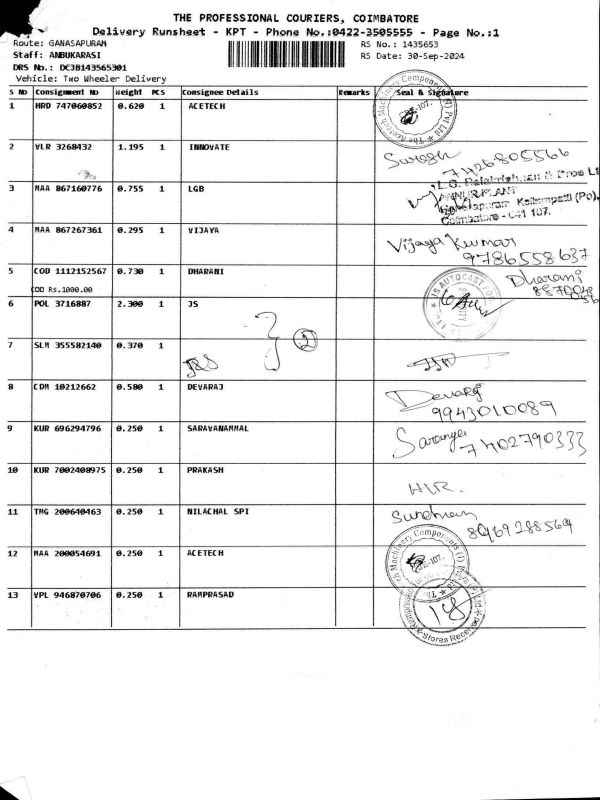 THE PROFESSIONAL COURIERS, COIMBATORE
Delivery Runsheet - KPT - Phone No.:0422-3505555 - Page No.:1
Route: GANASAPURAM
RS No.: 1435653
Staff: ANBUKARASI
RS Date: 30-Sep-2024
DRS No.: DCJB143565301
Vehicle: Two Wheeler Delivery
S No Consignment No Weight PCS Consignee Details Remarks Seal & Signature
1 HRD 747060852 0.620 1 ACETECH
2 VLR 3268432 1.195 1 INNOVATE Suresh
7426805566
3 MAA 867160776 0.755 1 LGB
Coimbatore - 641 107.
4 MAA 867267361 0.295 1 VIJAYA Vijaya Kumar
9786558637
5 COD 1112152567 0.730 1 DHARANI Dharani
COD Rs.1000.00
6 POL 3716887 2.300 1 JS
2
7 SLM 355582140 0.370 1
8 CDM 10212662 0.580 1 DEVARAJ Devaraj
9943010089
9 KUR 696294796 0.250 1 SARAVANAMMAL Saranya
7402790333
10 KUR 7002408975 0.250 1 PRAKASH
11 TMG 200640463 0.250 1 NILACHAL SPI
12 MAA 200054691 0.250 1 ACETECH
13 VPL 946870706 0.250 1 RAMPRASAD
Stores Received